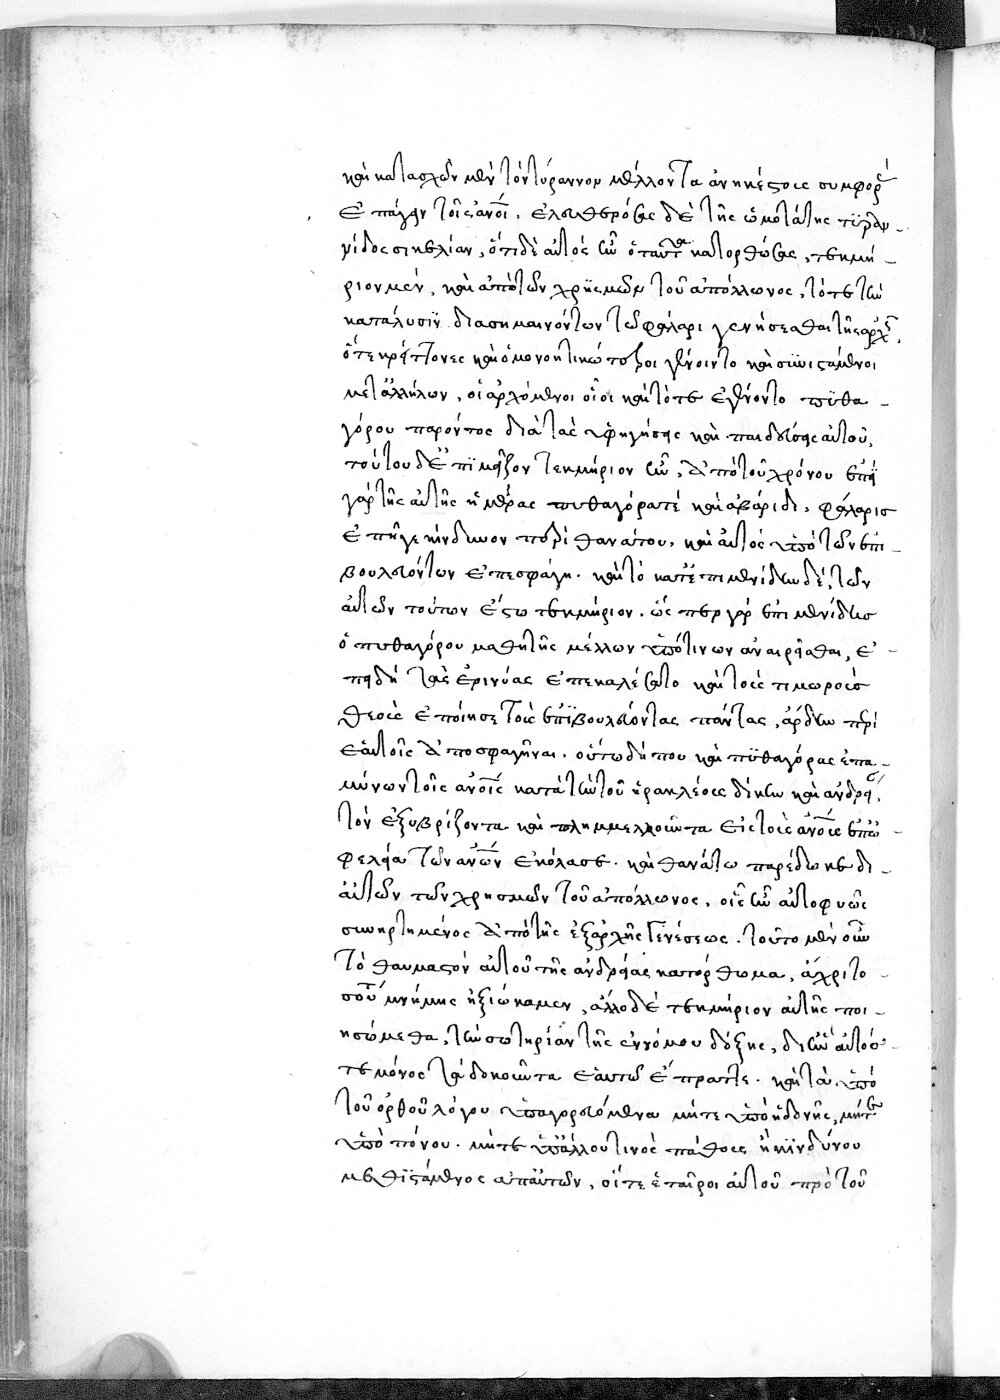 καὶ κατασχὼν μὲν τὸν τύραννον μέλλοντα ἀνηκέστοις συμφορὰς
ἐπάγειν τοῖς ἀνοις. ἐλευθερώσας δὲ τῆς ὠμοτάτης τυραν-
νίδος σικελίαν. ὅτι δὲ αὐτὸς ἦν ὁ ταῦτα κατορθώσας, τεκμή-
ριον μὲν, καὶ ἀπὸ τῶν χρησμῶν τοῦ ἀπόλλωνος, τότε τὴν
κατάλυσιν διασημαινόντων τῷ φαλάριδι γενήσεσθαι τῆς ἀρχῆς,
ὅτε κρείττονες καὶ ὁμονοητικώτεροι γένοιντο καὶ συνιστάμενοι
μετ' ἀλλήλων, οἱ ἀρχόμενοι οἷοι καὶ τότε ἐγένοντο πυθα-
γόρου παρόντος διὰ τὰς ὑφηγήσεις καὶ παιδεύσεις αὐτοῦ,
τούτου δ' ἔτι μεῖζον τεκμήριον ἦν, ἀπὸ τοῦ χρόνου ἐπὶ
γὰρ τῆς αὐτῆς ἡμέρας πυθαγόρα τὲ καὶ ἀβάριδι, φάλαρις
ἐπῆγε κίνδυνον περὶ θανάτου, καὶ αὐτὸς ὑπὸ τῶν ἐπι-
βουλευόντων ἀπεσφάγη. καὶ τὸ κατ' ἐπιμενίδην δὲ, τῶν
αὐτῶν τούτων ἔστω τεκμήριον. ὥσπερ γὰρ ἐπιμενίδης
ὁ πυθαγόρου μαθητὴς μέλλων ὑπό τινων ἀναιρεῖσθαι, ἐ-
πειδὴ τὰς ἐρινύας ἐπεκαλέσατο καὶ τοὺς τιμωροὺς
θεοὺς ἐποίησε τοὺς ἐπιβουλεύοντας πάντας, ἄρδην περὶ
ἑαυτοῖς ἀποσφαγῆναι. οὕτω δήπου καὶ πυθαγόρας ἐπα-
μύνων τοῖς ἀνοις κατὰ τὴν τοῦ ἡρακλέους δίκην καὶ ἀνδρείαν,
τὸν ἐξυβρίζοντα καὶ πλημμελοῦντα εἰς τοὺς ἀνους ἐπ' ὠ-
φελείᾳ τῶν ἀνων ἐκόλασε. καὶ θανάτω παρέδωκε δι-
αὐτῶν τῶν χρησμῶν τοῦ ἀπόλλωνος, οἷς ἦν αὐτοφυῶς
συνηρτημένος ἀπὸ τῆς ἐξαρχῆς γενέσεως. τοῦτο μὲν οὖν
τὸ θαυμαστὸν αὐτοῦ τῆς ἀνδρείας κατόρθωμα, ἄχρι το-
σούτου μνήμης ἠξιώκαμεν, ἄλλο δὲ τεκμήριον αὐτῆς ποι-
ησώμεθα, τὴν σωτηρίαν τῆς ἐννόμου δόξης, δι' ἣν αὐτός
τε μόνος τὰ δοκοῦντα ἑαυτῷ ἔπραττε. καὶ τὰ ὑπὸ
τοῦ ὀρθοῦ λόγου ὑπαγορευόμενα μήτε ὑπὸ ἡδονῆς, μήτε
ὑπὸ πόνου. μήτε ὑπ' ἄλλου τινὸς πάθους ἢ κινδύνου
μεθιστάμενος ἀπ' αὐτῶν, οἵ τε ἑταῖροι αὐτοῦ πρὸ τοῦ